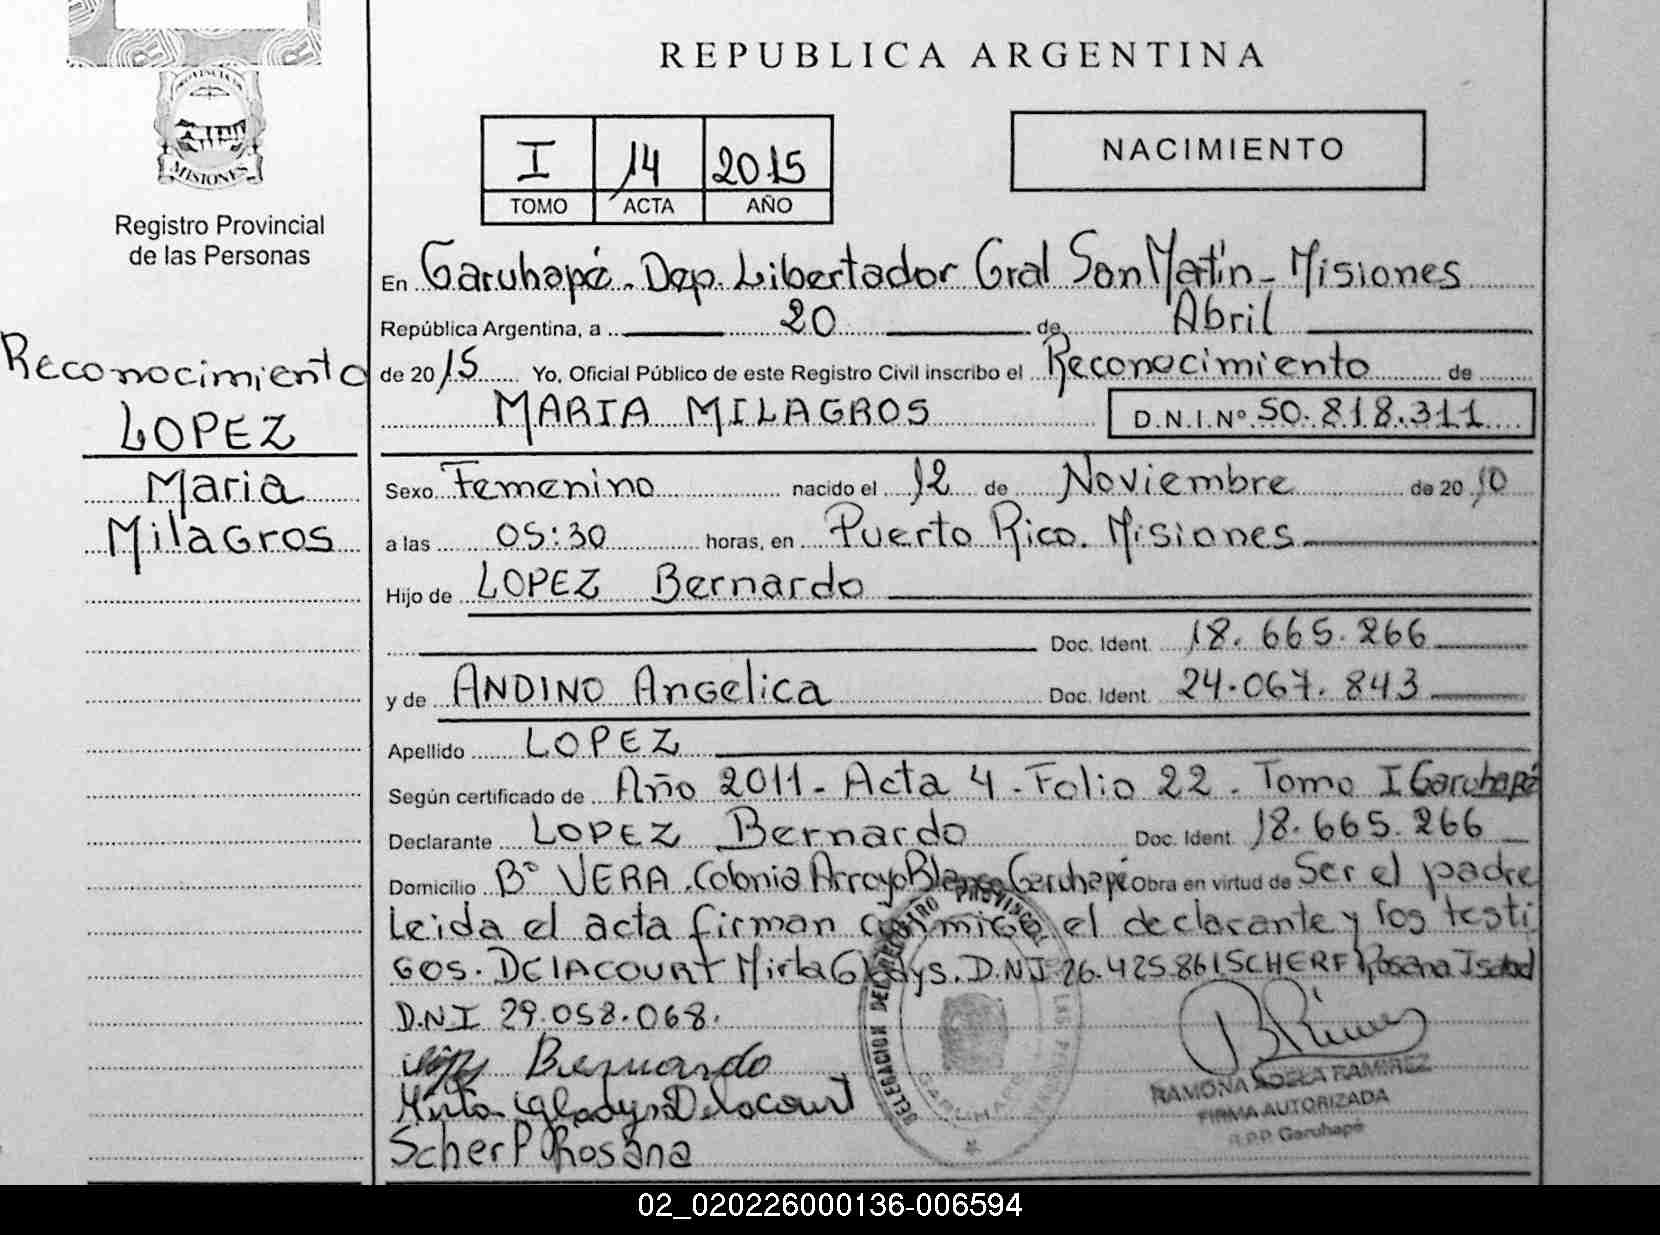 REPUBLICA ARGENTINA
PROVINCIA
MISIONES
Registro Provincial
de las Personas
I 14 2015
TOMO ACTA AÑO
NACIMIENTO
Reconocimiento
LOPEZ
Maria
Milagros
En Garuhapé. Dep. Libertador Gral San Martín - Misiones
República Argentina, a 20 de Abril
de 2015 Yo, Oficial Público de este Registro Civil inscribo el Reconocimiento de
MARIA MILAGROS D.N.I.Nº 50.818.311
Sexo Femenino nacido el 12 de Noviembre de 2010
a las 05:30 horas, en Puerto Rico. Misiones
Hijo de LOPEZ Bernardo
Doc. Ident. 18.665.266
y de ANDINO Angelica Doc. Ident. 24.067.843
Apellido LOPEZ
Según certificado de Año 2011 - Acta 4 - Folio 22 - Tomo I Garuhapé
Declarante LOPEZ Bernardo Doc. Ident. 18.665.266
Domicilio Bº VERA. Colonia Arroyo Blanco Garuhapé Obra en virtud de Ser el padre
Leida el acta firman conmigo el declarante y los testi
gos. DElACOURT Mirta Gladys. D.N.I 26.425.861 SCHERF Rosana Isabel
D.N.I 29.058.068.
Bernardo
Mirta Gladys Delacourt
Scherf Rosana
DELEGACION DEL REGISTRO PROVINCIAL DE LAS PERSONAS
GARUHAPE
RAMONA ADELA RAMIREZ
FIRMA AUTORIZADA
R.P.P. Garuhapé
02_020226000136-006594